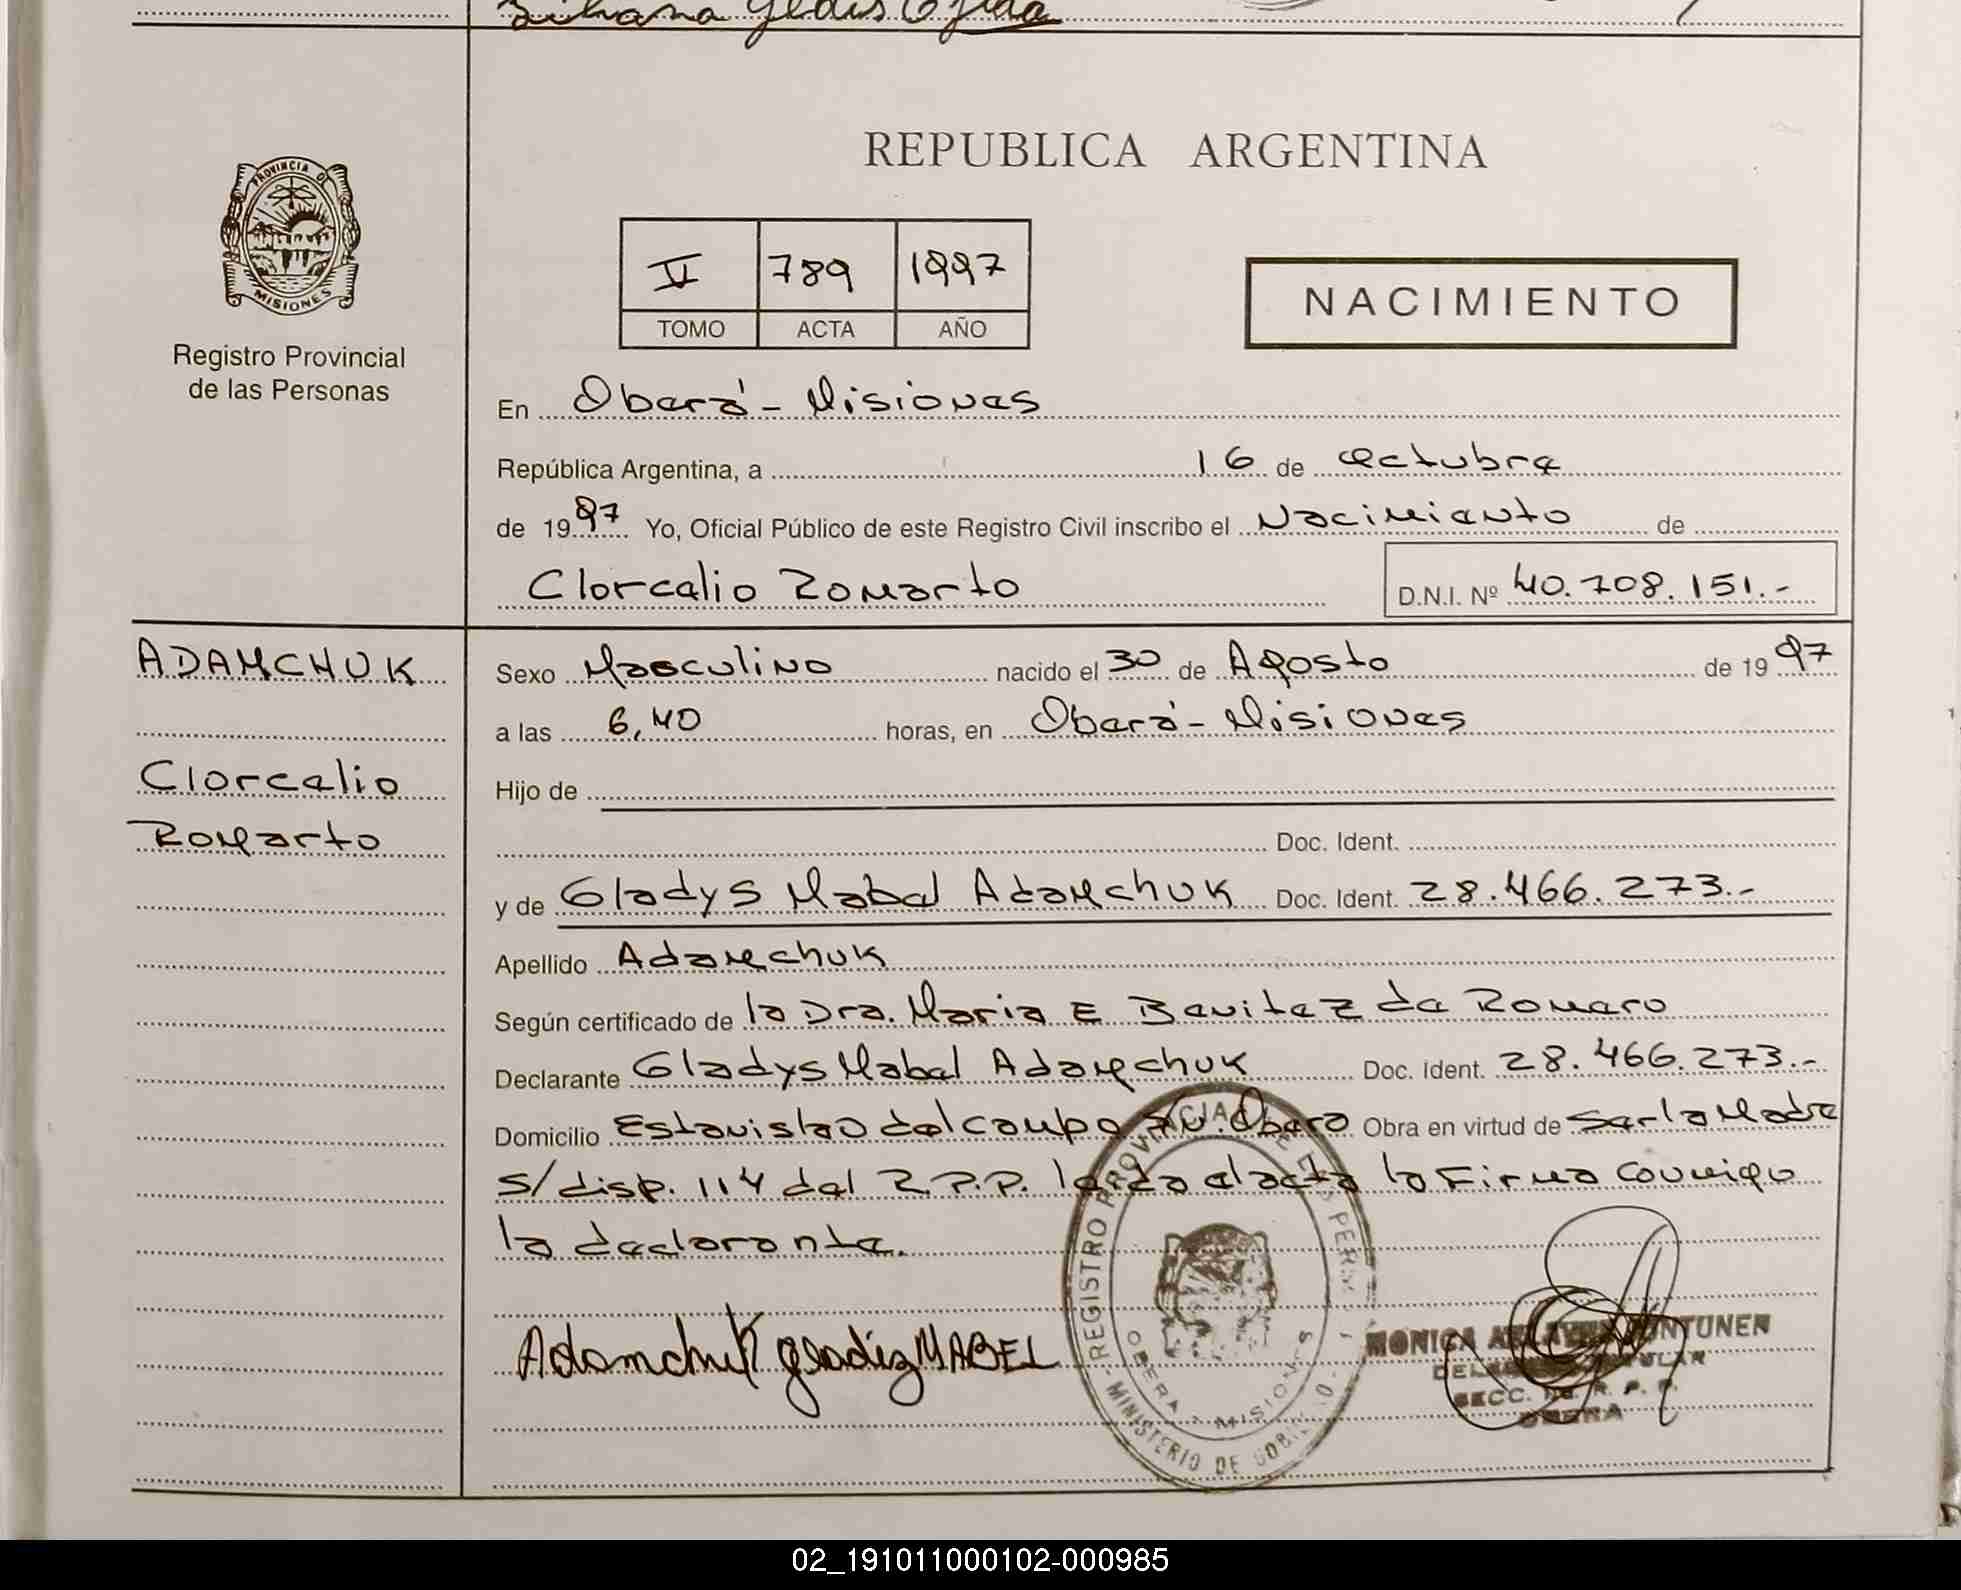 REPUBLICA ARGENTINA
PROVINCIA DE
MISIONES
Registro Provincial
de las Personas
II 789 1997
TOMO ACTA AÑO
NACIMIENTO
En Oberá - Misiones
República Argentina, a 16 de octubre
de 1997 Yo, Oficial Público de este Registro Civil inscribo el Nacimiento de
Clorcelio Romerto D.N.I. Nº 40.708.151.-
ADAMCHUK
Clorcelio
Romerto
Sexo Masculino nacido el 30 de Agosto de 1997
a las 6,40 horas, en Oberá - Misiones
Hijo de
Doc. Ident.
y de Gladys Mabel Adamchuk Doc. Ident. 28.466.273.-
Apellido Adamchuk
Según certificado de la Dra. Maria E Benitez de Romero
Declarante Gladys Mabel Adamchuk Doc. Ident. 28.466.273.-
Domicilio Estanislao del campo S/N. Oberá Obra en virtud de ser la Madre
s/ disp. 114 del R.P.P. leida el acta la Firma conmigo
la declarante.
Adamchuk gladiz MABEL
REGISTRO PROVINCIAL DE LAS PERSONAS
OBERA - MISIONES
- MINISTERIO DE GOBIERNO -
MONICA UNTUNEN
SECC. R. P. P.
OBERA
02_191011000102-000985